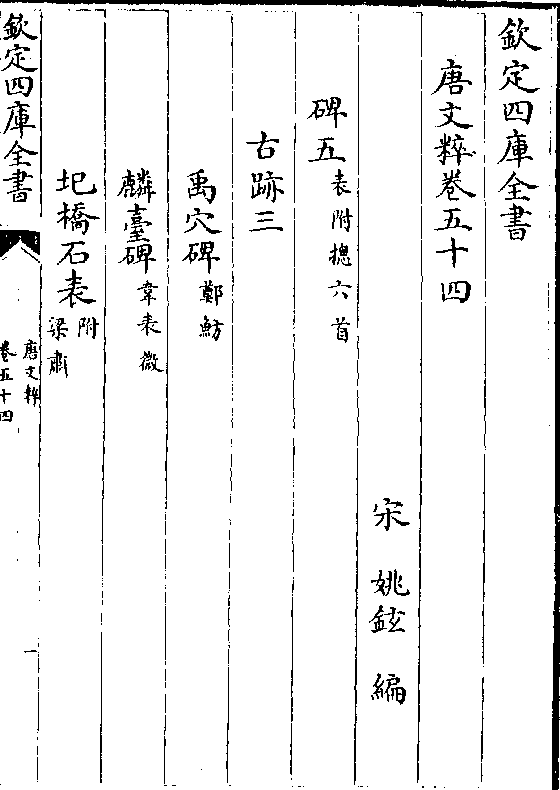 欽定四庫全書
唐文粹卷五十四
宋 姚鉉 編
碑五 表附摠六首
古跡三
禹穴碑 鄭魴
麟臺碑 韋表微
圯橋石表 附 梁肅
欽定四庫全書
唐文粹
卷五十四
一